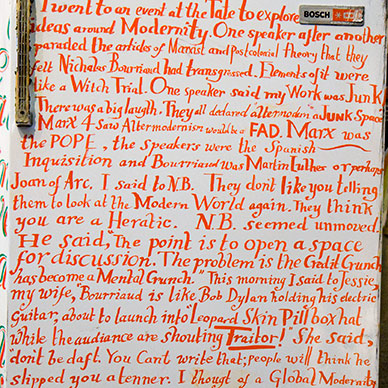 I went to an event at the Tate to explore
BOSCH
ideas around Modernity. One speaker after another
paraded the articles of Marxist and postcolonial theory that they
felt Nicholas Bourriaud had transgressed. Elements of it were
like a Witch Trial. One speaker said my Work was Junk
There was a big laugh. They all declared altermodern a JUNK Space
Marx 4 said Altermodernism would be a FAD. Marx was
the POPE, the speakers were the Spanish
Inquisition and Bourriaud was Martin Luther or perhaps
Joan of Arc. I said to N.B. They don't like you telling
them to look at the Modern World again. They think
you are a Heratic. N.B. seemed unmoved.
He said, "The point is to open a space
for discussion. The problem is the Credit Crunch
has become a Mental Crunch." This morning I said to Jessie,
my wife, "Bourriaud is like Bob Dylan holding his electric
Guitar, about to launch into Leopard Skin Pill box hat
while the audience are shouting Traitor!" She said,
don't be daft. You Can't write that; people will think he
slipped you a tenner. I thougt of a Global Modernity